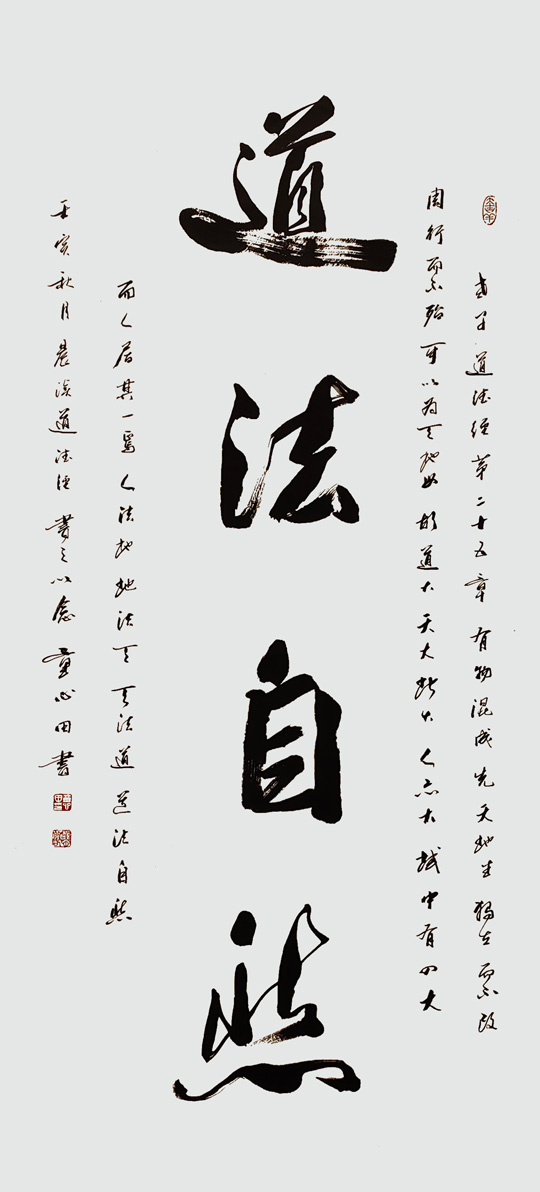 道法自然
老子道德经第二十五章有物混成先天地生独立而不改
周行而不殆可以为天地母故道大天大地大人亦大域中有四大
而人居其一焉人法地地法天天法道道法自然
壬寅秋月晨读道德经书之以念童心田书